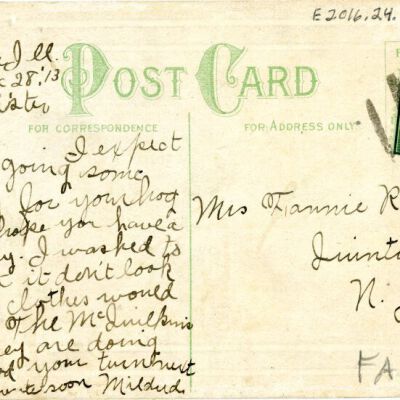 E2016.24.
Ill.
28.'13
POST CARD
FOR CORRESPONDENCE
FOR ADDRESS ONLY.
I expect
going some
for your hog
hope you have a
I washed to
it don't look
clothes would
The McQuilkins
are doing
your turn
soon Mildred.
Mrs Fannie R
Quinto
N. J
FA